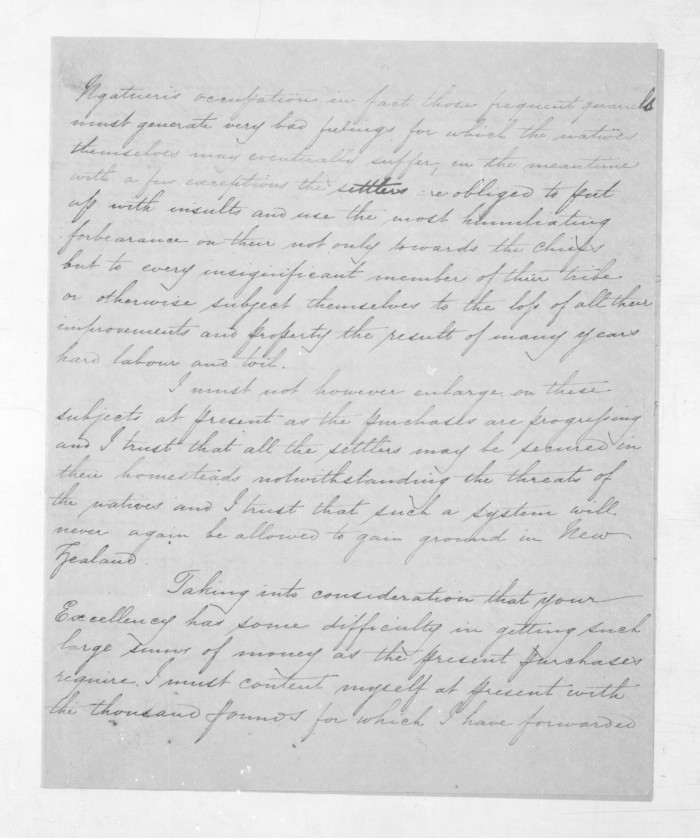 Ngatueris occupation in fact those frequent quarrels
must generate very bad feelings for which the natives
themselves may eventually suffer, in the meantime
with a few exceptions the settlers re obliged to put
up with insults and use the most humiliating
forbearance on their not only towards the chiefs
but to every insignificant member of their tribe
or otherwise subject themselves to the loss of all their
improvements and property the result of many years
hard labour and toil.
I must not however enlarge on these
subjects at present as the purchases are progressing
and I trust that all the settlers may be secured in
their homesteads notwithstanding the threats of
the natives and I trust that such a system will
never again be allowed to gain ground in New
Zealand.
Taking into consideration that your
Excellency has some difficulty in getting such
large sums of money as the present purchases
require. I must content myself at present with
the thousand pounds for which I have forwarded